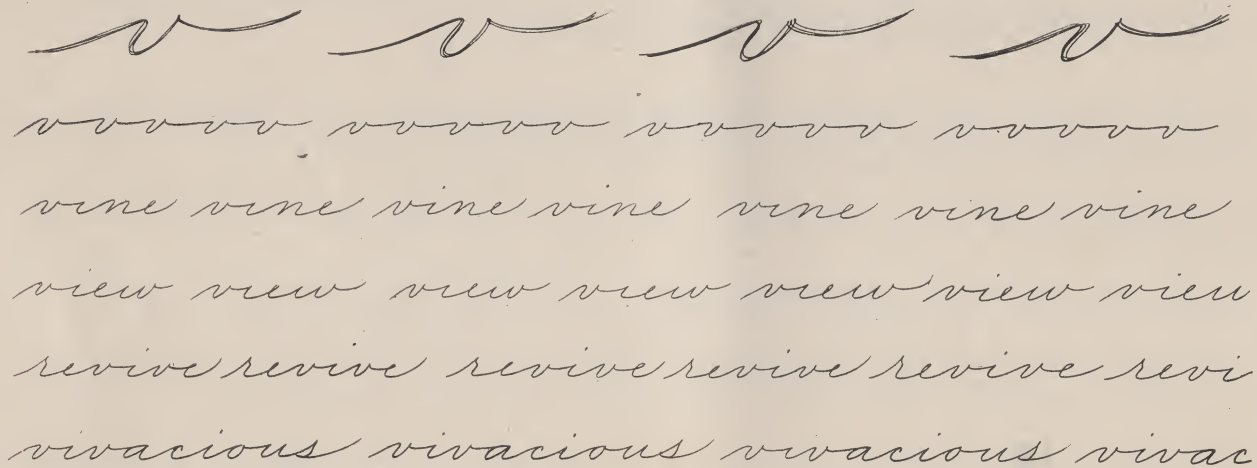 v v v v
vvvvv vvvvv vvvvv vvvvv
vine vine vine vine vine vine vine
view view view view view view view
revive revive revive revive revive revi
vivacious vivacious vivacious vivac